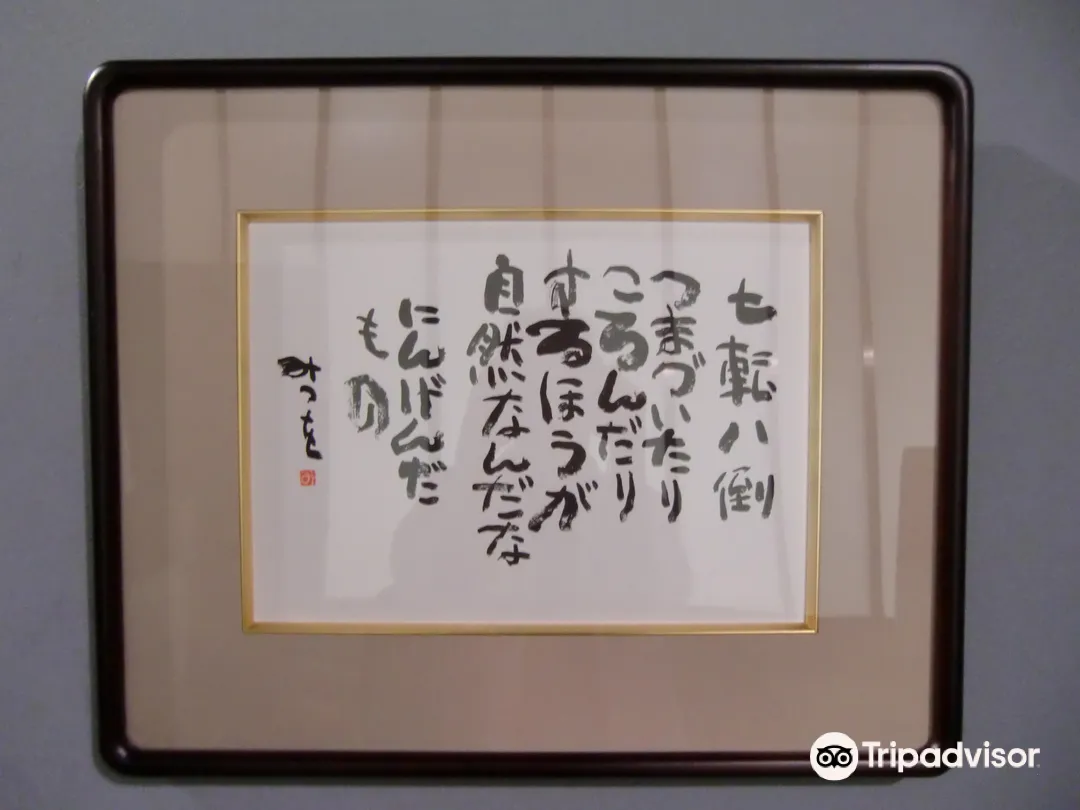 七転八倒
つまづいたり
ころんだり
するほうが
自然なんだな
にんげんだ
もの
みつを
Tripadvisor